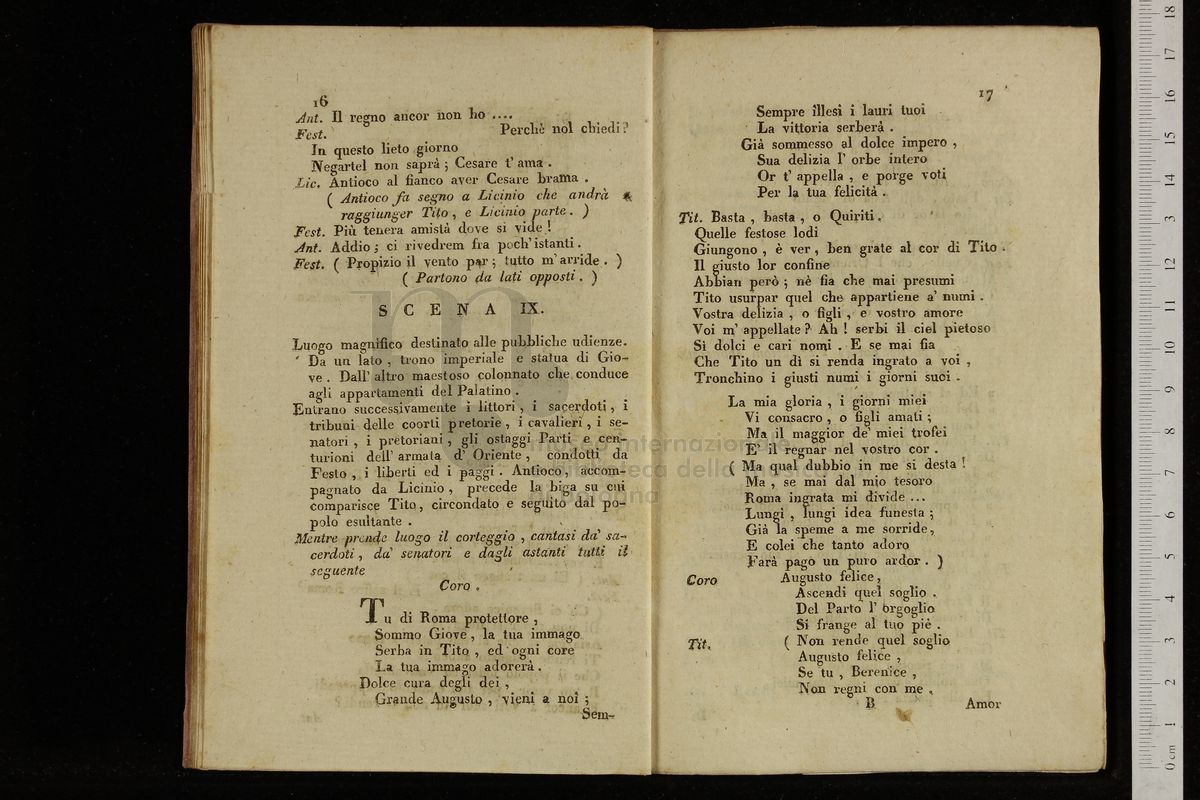 16
Ant. Il regno ancor non ho ....
Fest. Perchè nol chiedi?
In questo lieto giorno
Negartel non saprà ; Cesare t' ama .
Lic. Antioco al fianco aver Cesare brama .
( Antioco fa segno a Licinio che andrà a
raggiunger Tito , e Licinio parte . )
Fest. Più tenera amistà dove si vide !
Ant. Addio ; ci rivedrem fra poch' istanti .
Fest. ( Propizio il vento par ; tutto m' arride . )
( Partono da lati opposti . )
SCENA IX.
Luogo magnifico destinato alle pubbliche udienze.
Da un lato , trono imperiale e statua di Gio-
ve . Dall' altro maestoso colonnato che conduce
agli appartamenti del Palatino .
Entrano successivamente i littori , i sacerdoti , i
tribuni delle coorti pretorie , i cavalieri , i se-
natori , i pretoriani , gli ostaggi Parti e cen-
turioni dell' armata d' Oriente , condotti da
Festo , i liberti ed i paggi . Antioco , accom-
pagnato da Licinio , precede la biga su cui
comparisce Tito, circondato e seguito dal po-
polo esultante .
Mentre prende luogo il corteggio , cantasi da' sa-
cerdoti , da' senatori e dagli astanti tutti il
seguente
Coro .
Tu di Roma protettore ,
Sommo Giove , la tua immago
Serba in Tito , ed ogni core
La tua immago adorerà .
Dolce cura degli dei ,
Grande Augusto , vieni a noi ;
Sem-
17
Sempre illesi i lauri tuoi
La vittoria serberà .
Già sommesso al dolce impero ,
Sua delizia l' orbe intero
Or t' appella , e porge voti
Per la tua felicità .
Tit. Basta , basta , o Quiriti .
Quelle festose lodi
Giungono , è ver , ben grate al cor di Tito .
Il giusto lor confine
Abbian però ; nè fia che mai presumi
Tito usurpar quel che appartiene a' numi .
Vostra delizia , o figli , e vostro amore
Voi m' appellate ? Ah ! serbi il ciel pietoso
Sì dolci e cari nomi . E se mai fia
Che Tito un dì si renda ingrato a voi ,
Tronchino i giusti numi i giorni suoi .
La mia gloria , i giorni miei
Vi consacro , o figli amati ;
Ma il maggior de' miei trofei
E' il regnar nel vostro cor .
( Ma qual dubbio in me si desta !
Ma , se mai dal mio tesoro
Roma ingrata mi divide ...
Lungi , lungi idea funesta ;
Già la speme a me sorride ,
E colei che tanto adoro
Farà pago un puro ardor . )
Coro Augusto felice ,
Ascendi quel soglio .
Del Parto l' orgoglio
Si frange al tuo piè .
Tit. ( Non rende quel soglio
Augusto felice ,
Se tu , Berenice ,
Non regni con me ,
B Amor
museo internazionale
e biblioteca della musica
di bologna
0 cm 1 2 3 4 5 6 7 8 9 10 11 12 13 14 15 16 17 18